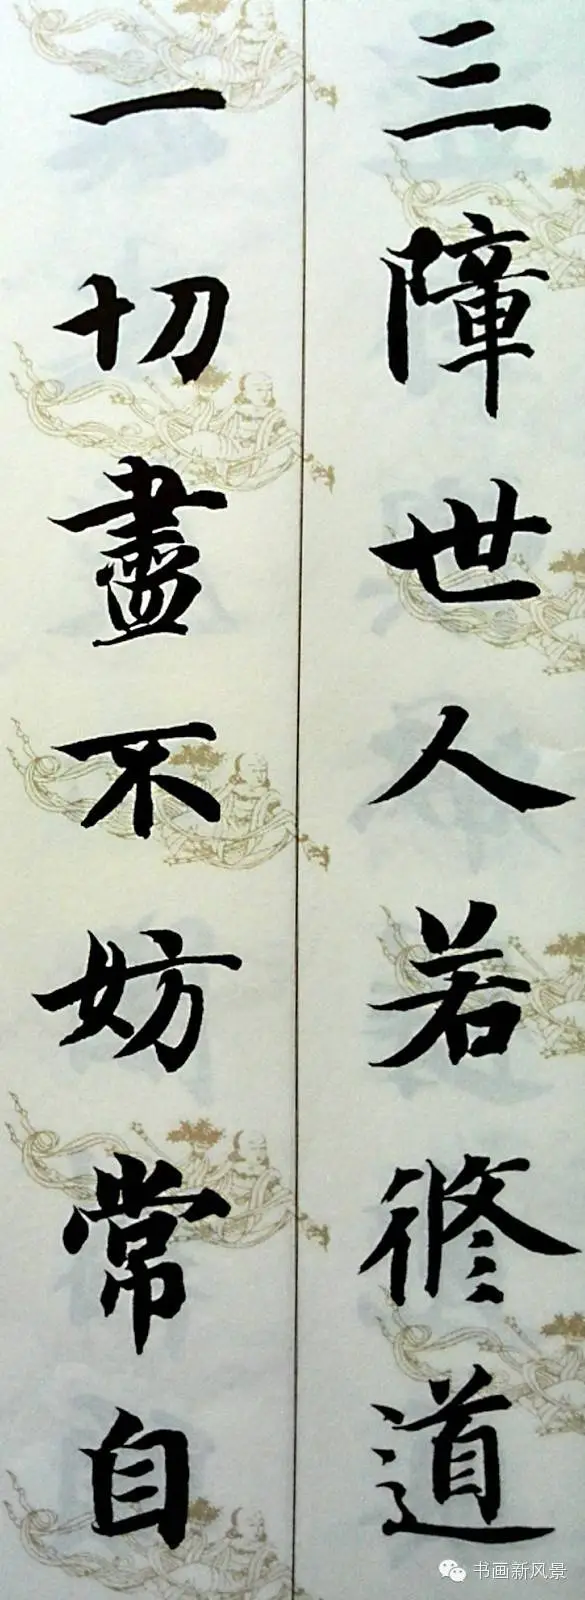 三障世人若修道
一切盡不妨常自
书画新风景